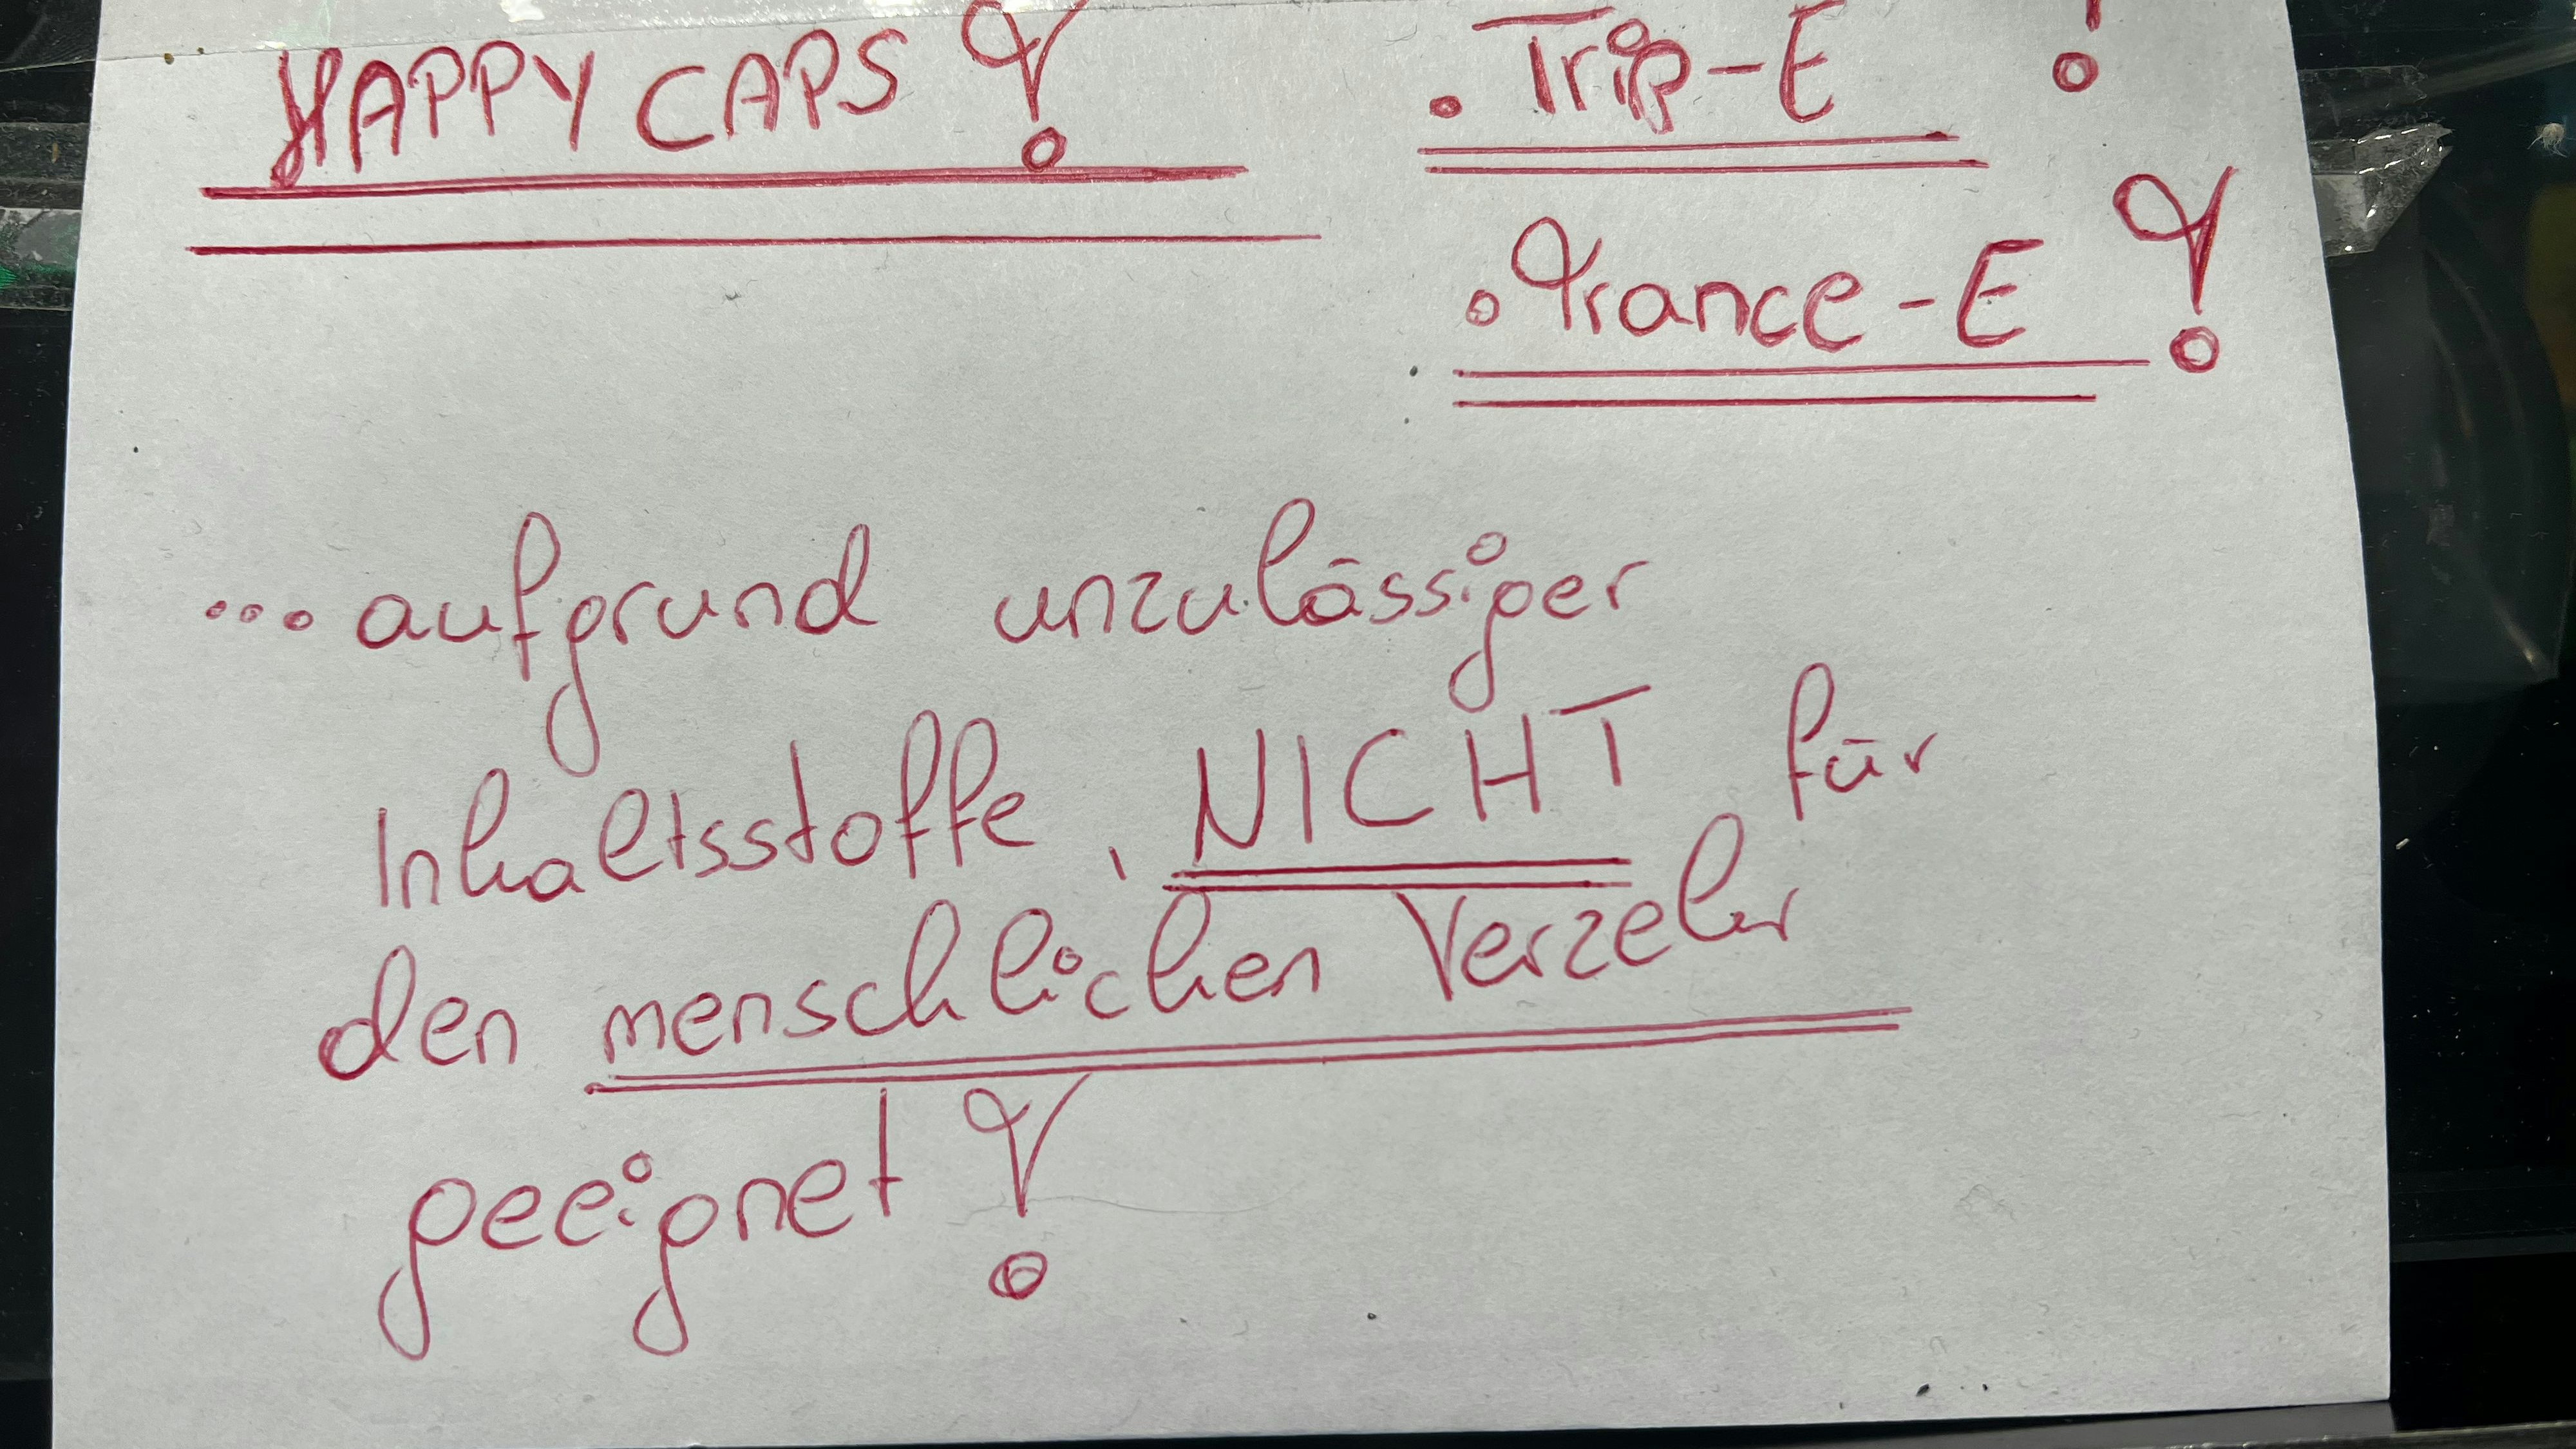 HAPPY CAPS !
• Trip-E !
• Trance-E !
... aufgrund unzulässiger
Inhaltsstoffe, NICHT für
den menschlichen Verzehr
geeignet !